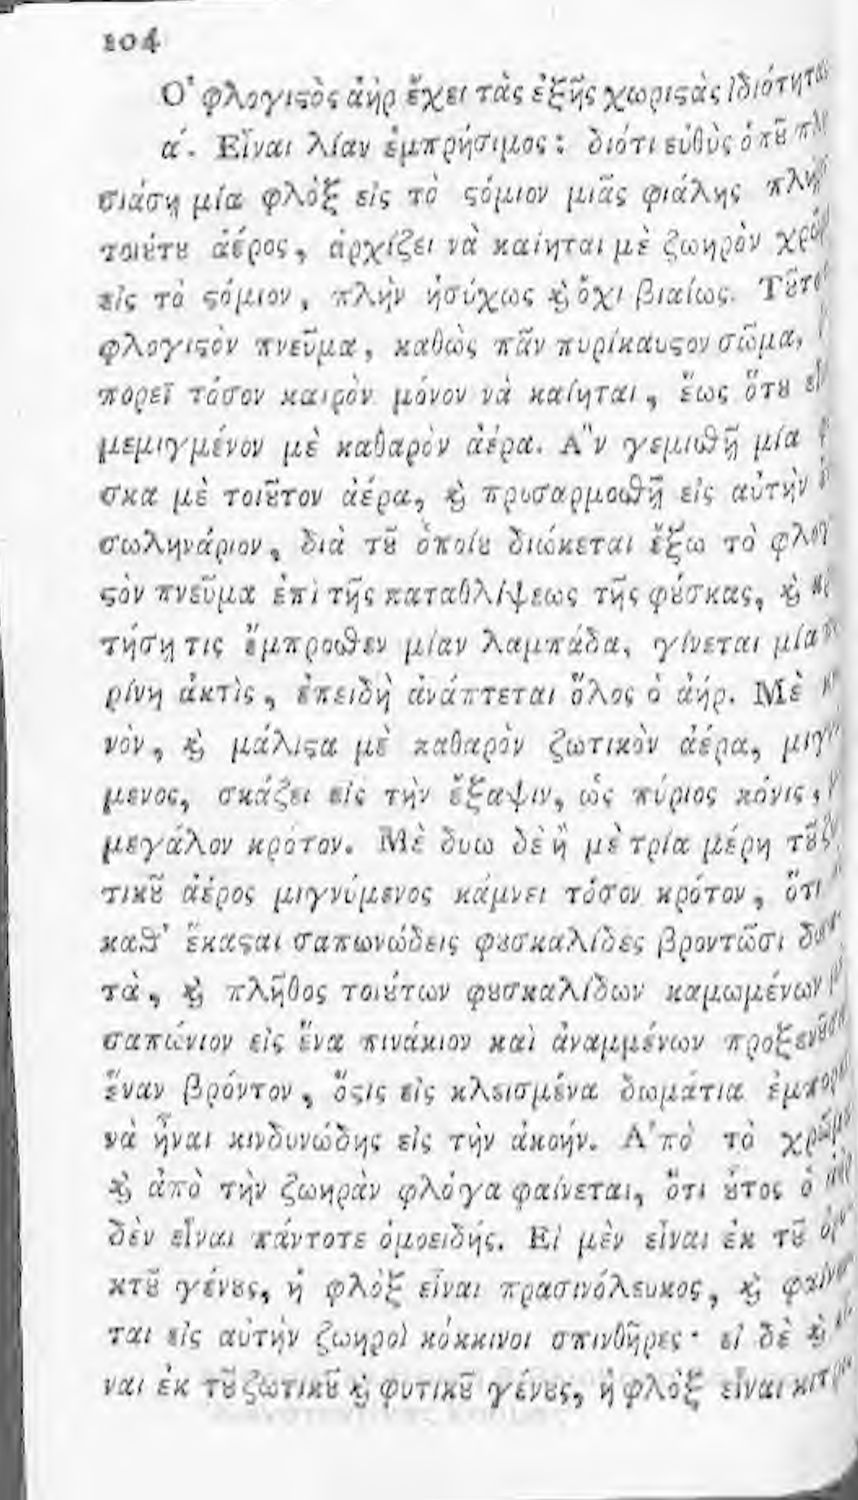 104
Ο᾿ φλογιϛὸς ἀὴρ ἔχει τὰς ἐξῆς χωριϛὰς ἰδιότητας
α΄. Εἶναι λίαν ἐμπρήσιμος: διότι εὐθὺς ὁπȣ͂
σιάσῃ μία φλὸξ εἰς τὸ ϛόμιον μιᾶς φιάλης
τοιȣ́τȣ ἀέρος, ἀρχίζει νὰ καίηται μὲ ζωηρὸν
εἰς τὸ ϛόμιον, πλὴν ἡσύχως ϗ ὄχι βιαίως.
φλογιϛὸν πνεῦμα, καθὼς πᾶν πυρίκαυϛον σῶμα,
πορεῖ τόσον καιρὸν μόνον νὰ καίηται, ἕως ὅτȣ
μεμιγμένον μὲ καθαρὸν ἀέρα. Α῎ν γεμισθῇ μία
σκα μὲ τοιȣ͂τον ἀέρα, ϗ προσαρμοσθῇ εἰς αὐτὴν
σωληνάριον, διὰ τȣ͂ ὁποίȣ διώκεται ἔξω τὸ φλογι
ϛὸν πνεῦμα ἐπὶ τῆς καταθλίψεως τῆς φȣ́σκας, ϗ
τήσῃ τις ἔμπροσθεν μίαν λαμπάδα, γίνεται μία
ρίνη ἀκτὶς, ἐπειδὴ ἀνάπτεται ὅλος ὁ ἀήρ. Μὲ
νὸν, ϗ μάλιϛα μὲ καθαρὸν ζωτικὸν ἀέρα, μιγνύ
μενος, σκάζει εἰς τὴν ἔξαψιν, ὡς πύριος κόνις,
μεγάλον κρότον. Μὲ δυω δὲ ἢ μὲ τρία μέρη τȣ͂
τικȣ͂ ἀέρος μιγνύμενος κάμνει τόσον κρότον, ὅτι
καθ᾿ ἕκαϛαι σαπωνώδεις φȣσκαλίδες βροντῶσι
τὰ, ϗ πλῆθος τοιȣ́των φȣσκαλίδων καμωμένων
σαπώνιον εἰς ἕνα πινάκιον καὶ ἀναμμένων
ἕναν βρόντον, ὅϛις εἰς κλεισμένα δωμάτια ἐμπορεῖ
νὰ ἦναι κινδυνώδης εἰς τὴν ἀκοήν. Α᾿πὸ τὸ χρῶμα
ϗ ἀπὸ τὴν ζωηρὰν φλόγα φαίνεται, ὅτι ȣ̓́τος ὁ ἀὴρ
δὲν εἶναι πάντοτε ὁμοειδής. Εἰ μὲν εἶναι ἐκ τȣ͂ ὀρυ
κτȣ͂ γένȣς, ἡ φλὸξ εἶναι πρασινόλευκος, ϗ φαίνον
ται εἰς αὐτὴν ζωηροὶ κόκκινοι σπινθῆρες· εἰ δὲ ϗ
ναι ἐκ τȣ͂ ζωτικȣ͂ ϗ φυτικȣ͂ γένȣς, ἡ φλὸξ εἶναι